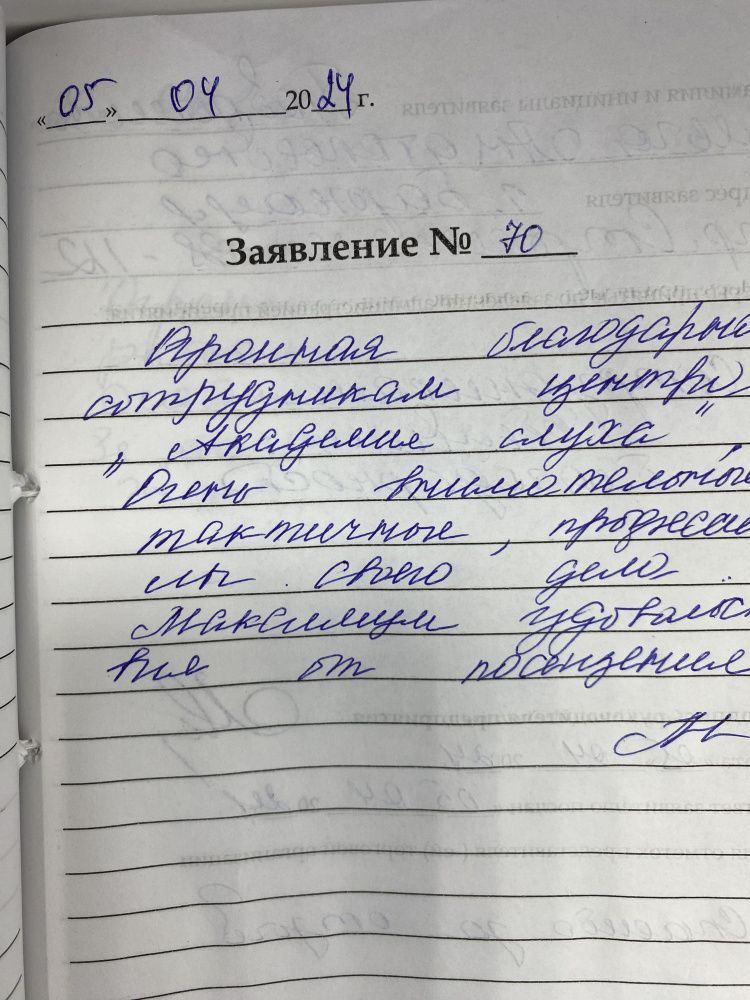 «05» 04 2024 г.
Заявление № 70
Огромная благодарно
сотрудникам центра
„Академия слуха",
Очень внимательные
тактичные, професси
лы своего дела.
Максимум удовольс
вия от посещения